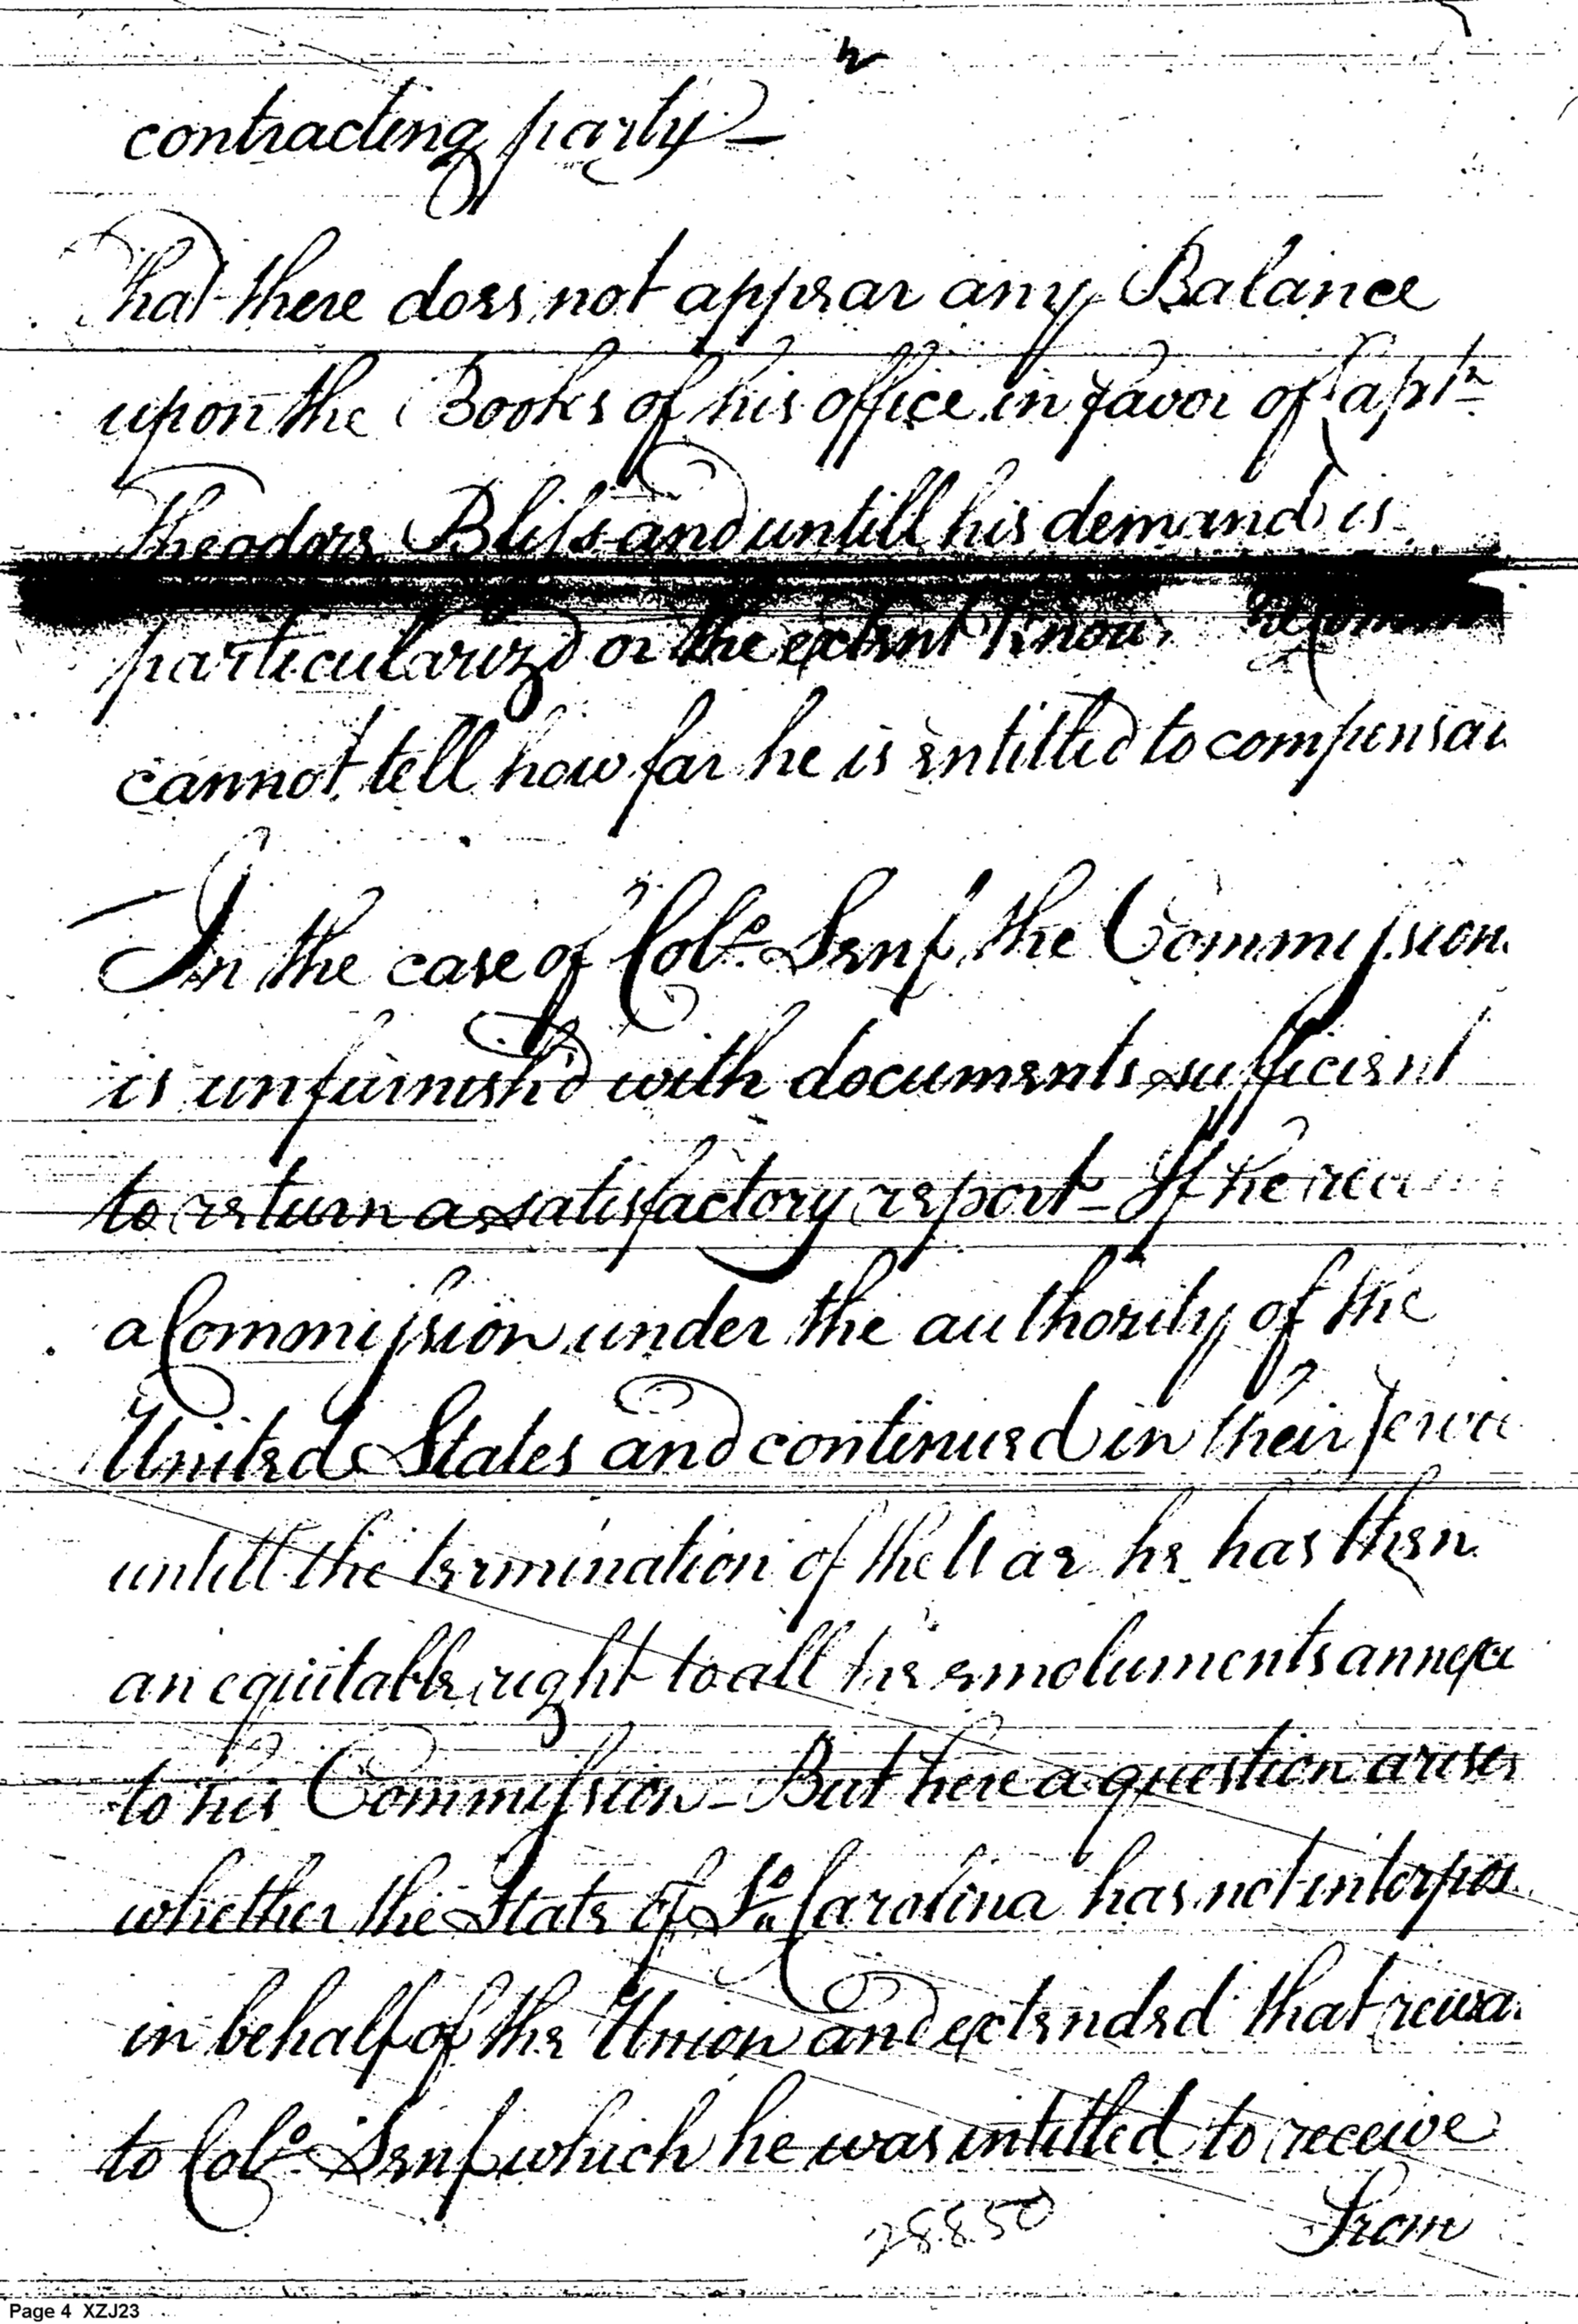 2
contracting party —
That there does not appear any Balance
upon the Books of his office in favor of Captn
Theodore Bliss and untill his demand is
particulariz'd or the extent know
cannot tell how far he is entitled to compensa
In the case of Colo. Senf, the Commission
is unfurnish'd with documents sufficient
to return a satisfactory report — If he rec
a Commission under the authority of the
United States and continued in their Servi
untill the termination of the War he has then
an equitable right to all the emoluments annexe
to his Commission — But here a question arises
whether the State of So. Carolina has not interpos
in behalf of the Union and extended that rewa
to Colo. Senf which he was intitled to receive
28850
From
Page 4 XZJ23